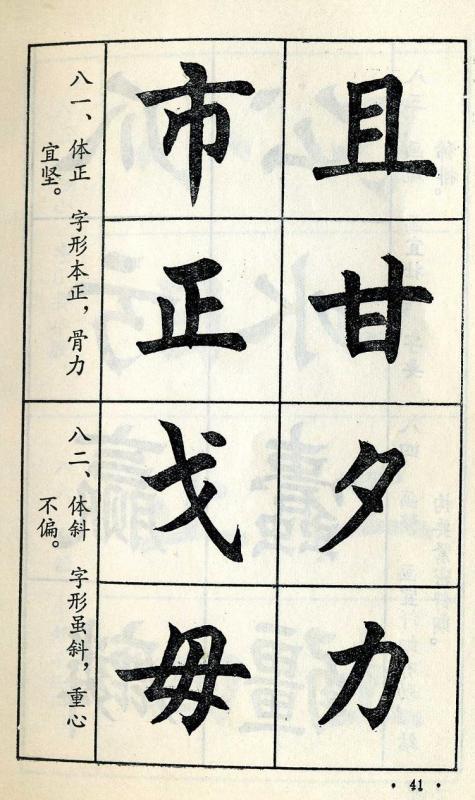 且甘
市正
八一、体正 字形本正，骨力
宜坚。
夕力
戈毋
八二、体斜 字形虽斜，重心
不偏。
·41·